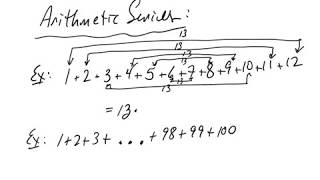 Arithmetic Series:
13
13
13
Ex: 1+2+3+4+5+6+7+8+9+10+11+12
13
13
= 13·
Ex: 1+2+3+ ... +98+99+100